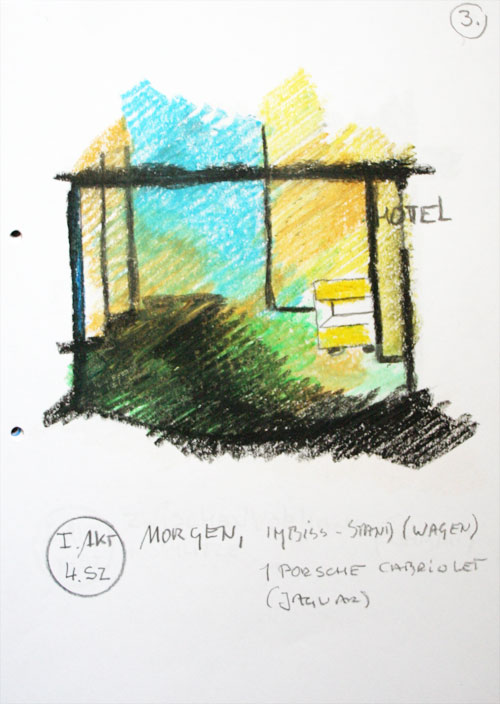 3.
HOTEL
I. AKT
4. SZ
MORGEN, IMBISS-STAND (WAGEN)
1 PORSCHE CABRIOLET
(JAGUAR)